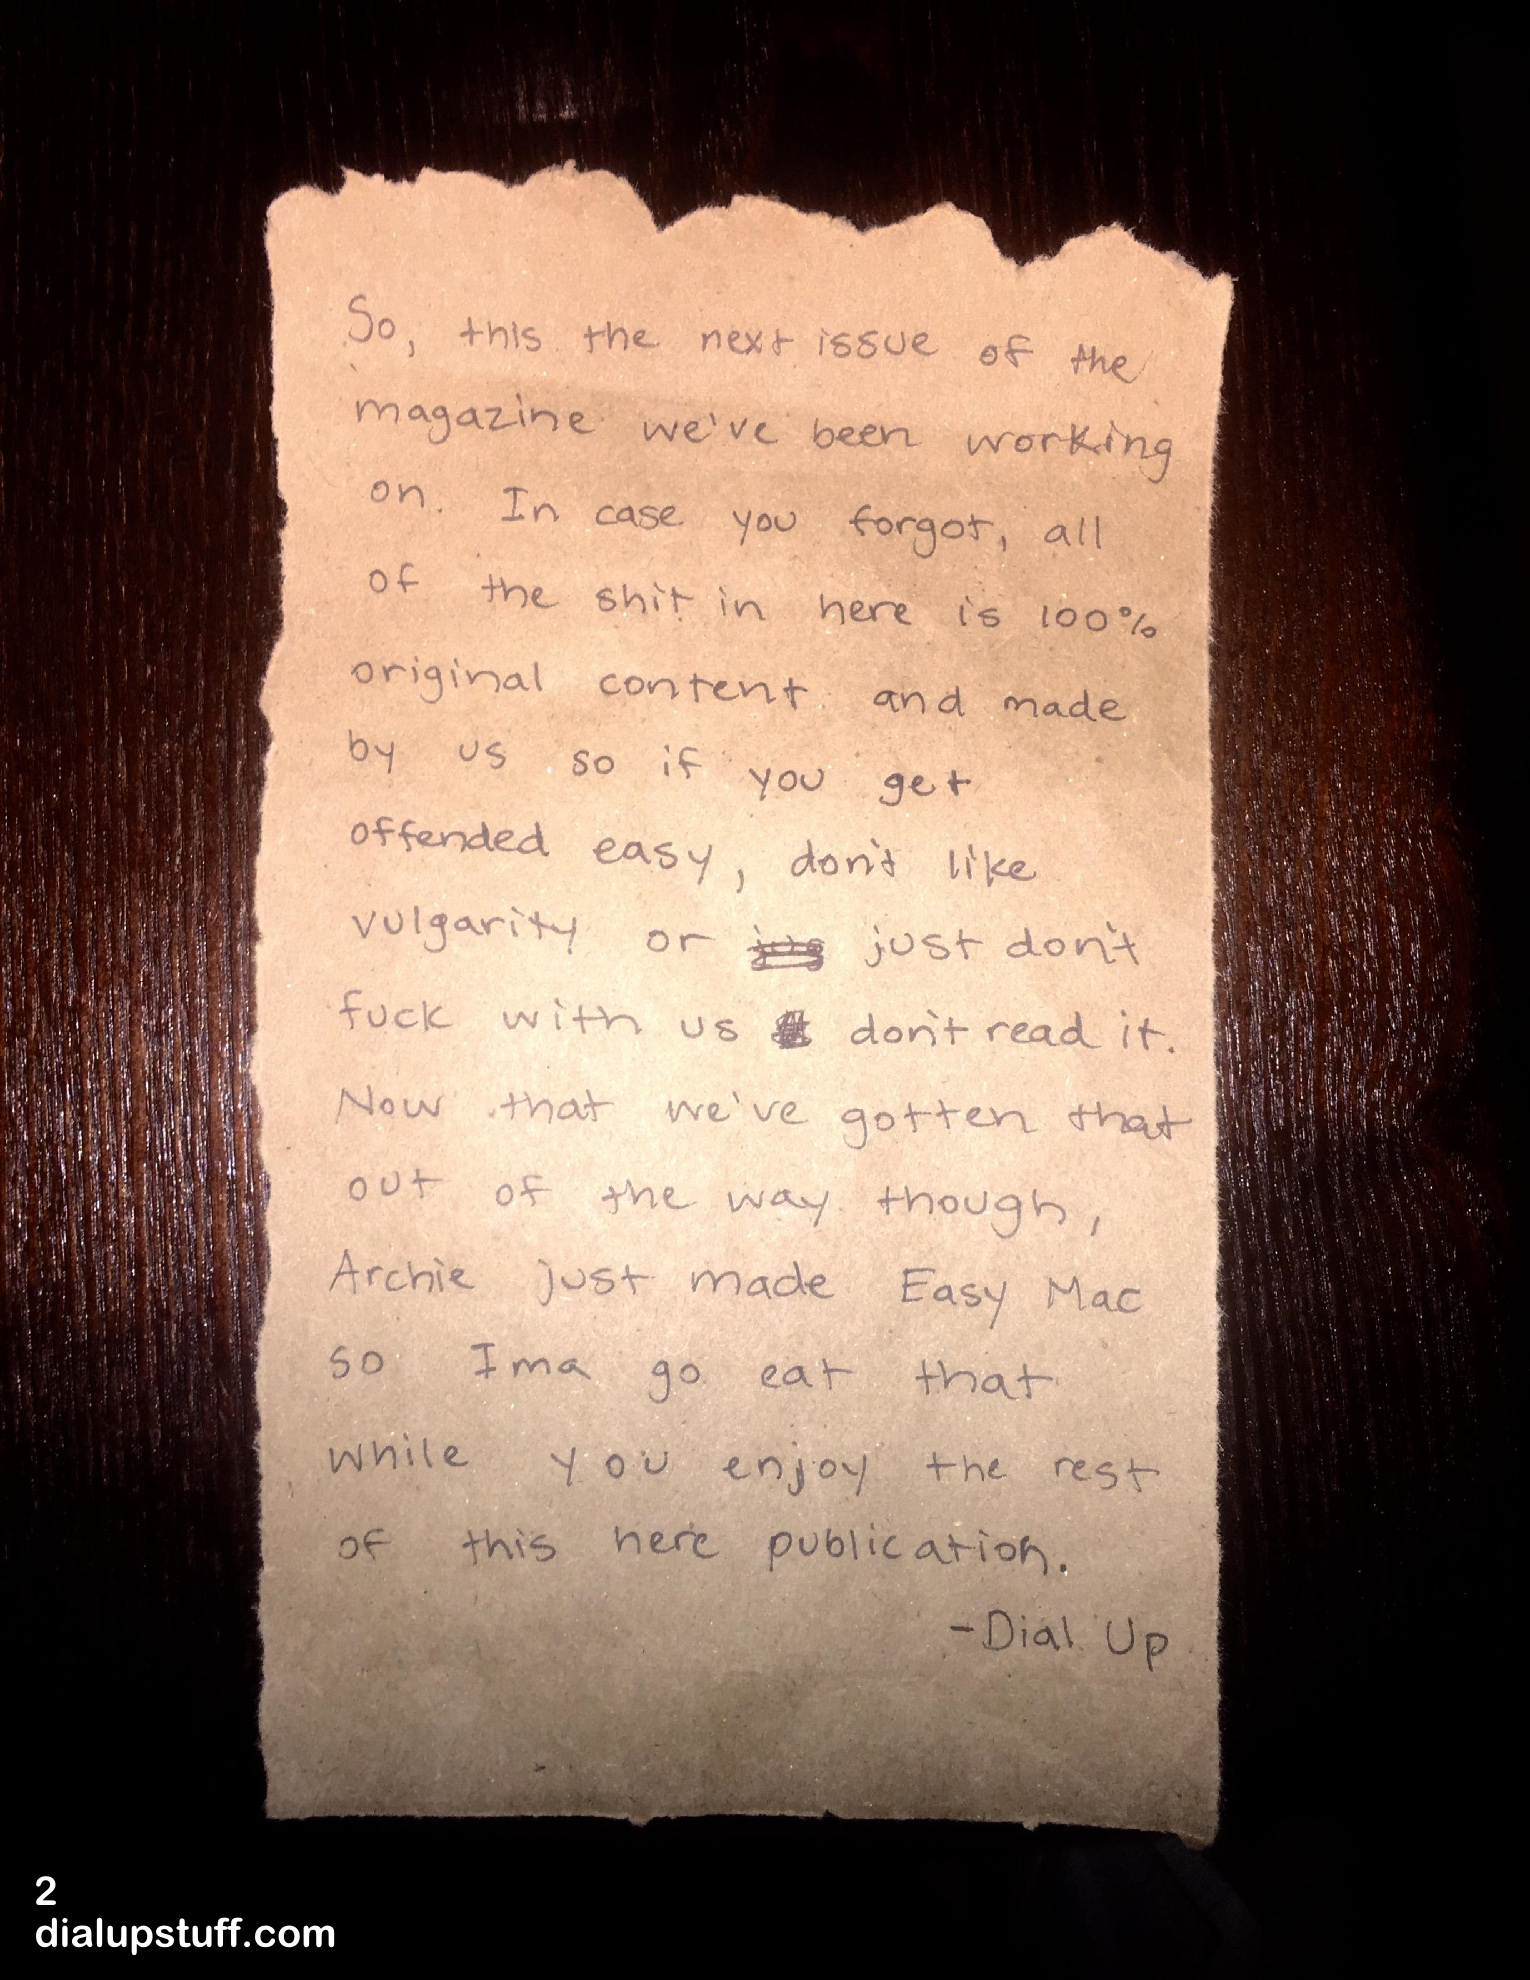 So, this the next issue of the
magazine we've been working
on. In case you forgot, all
of the shit in here is 100%
original content and made
by us so if you get
offended easy, don't like
vulgarity or jus just don't
fuck with us don't read it.
Now that we've gotten that
out of the way though,
Archie just made Easy Mac
so Ima go eat that
while you enjoy the rest
of this here publication.
-Dial Up
2
dialupstuff.com